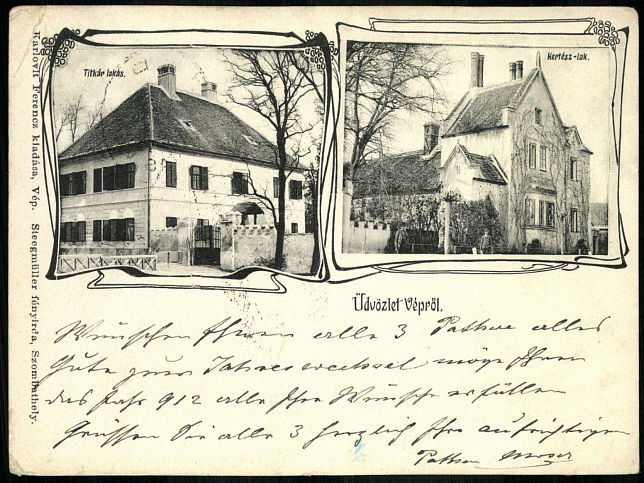 Titkár lakás.
Kertész-lak.
Karlovit Ferencz kiadása, Vép. Steegmüller fényirda, Szombathely.
Üdvözlet Vépről.
Wünschen Ihnen alle 3 alles
Gute zum Jahreswechsel möge Ihnen
das Jahr 912 alle Ihre Wünsche erfüllen
Grüssen Sie alle 3 herzlich Ihre aufrichtigen